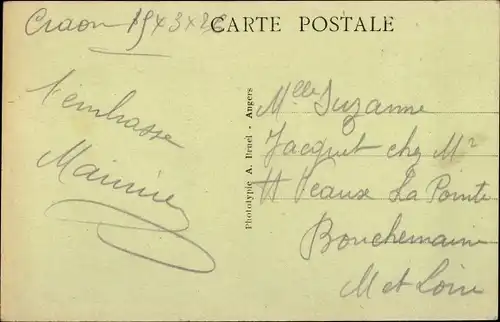 Craon
CARTE POSTALE
t'embrasse
Phototypie A. Bruel - Angers
Mlle Suzanne
Jacquet chez Mr
La Pointe
Bouchemaine
M et Loire